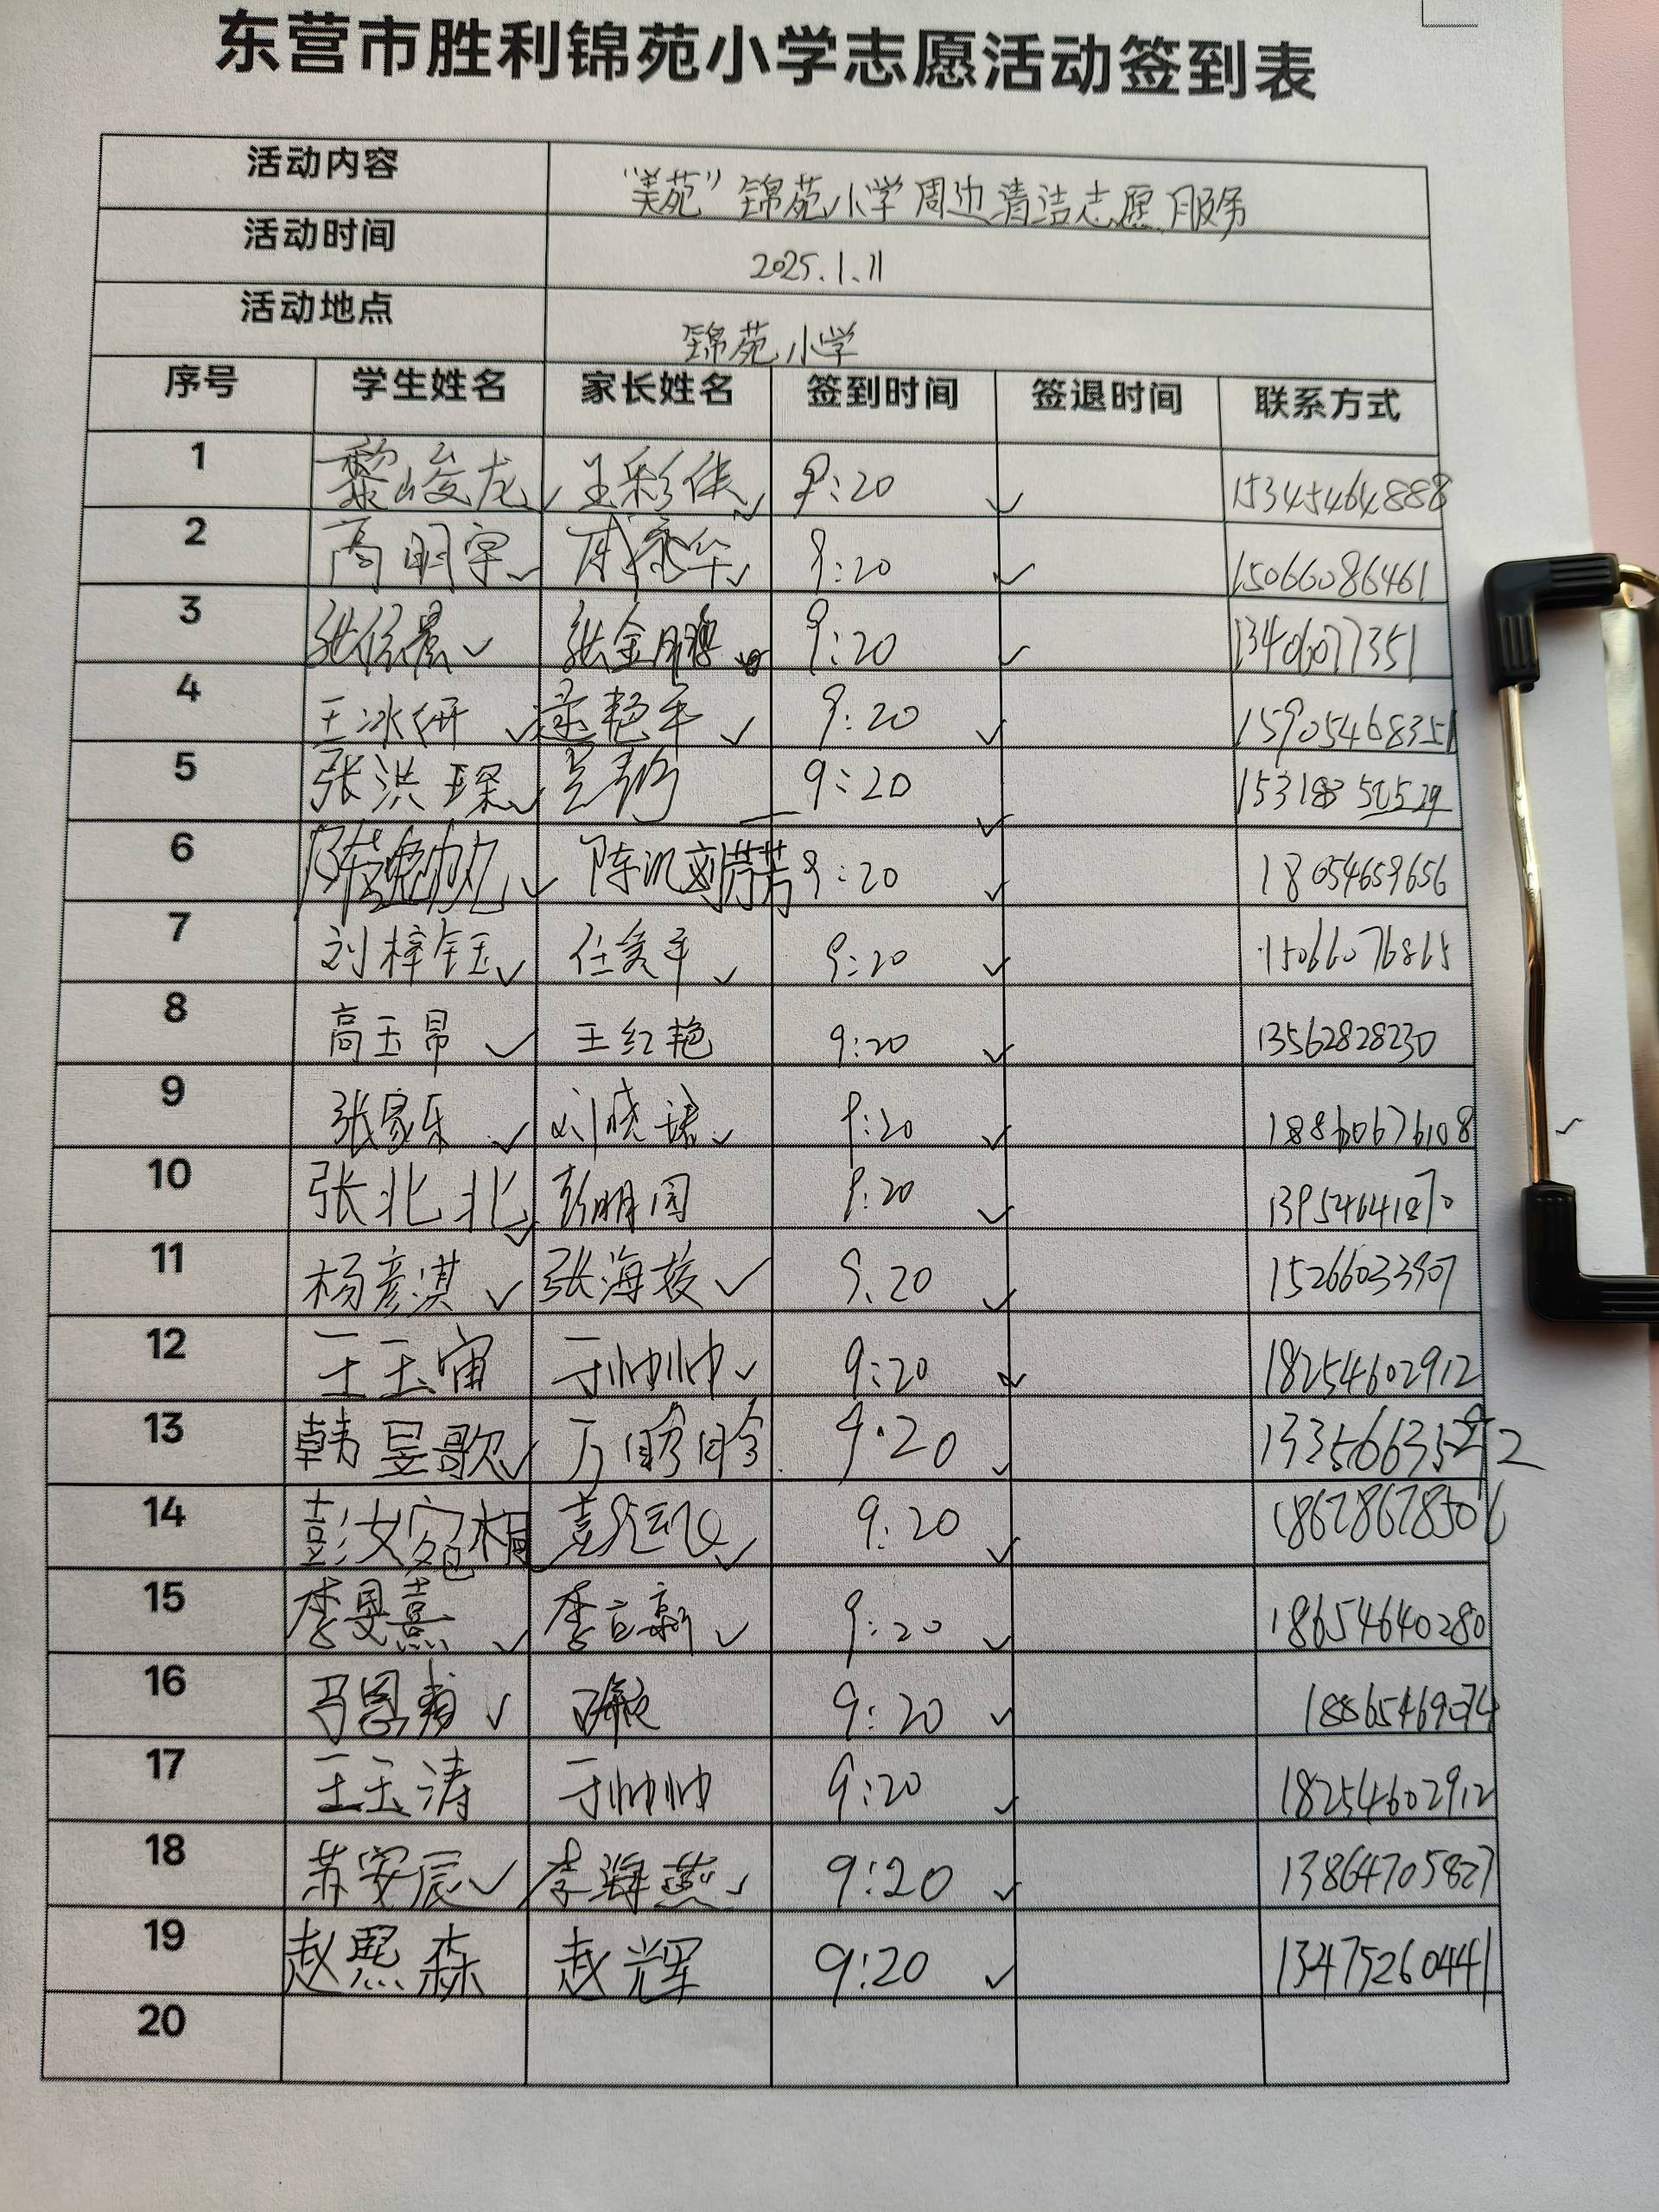 东营市胜利锦苑小学志愿活动签到表
活动内容 "美苑"锦苑小学周边清洁志愿服务
活动时间 2025.1.11
活动地点 锦苑小学
序号 学生姓名 家长姓名 签到时间 签退时间 联系方式
1 黎峻龙 王彩侠 9:20 15345464888
2 高明宇 9:20 15066086461
3 张金鹏 9:20 13406077351
4 王冰妍 逯艳平 9:20 15905468351
5 张洪琛 9:20
6 9:20 18054659656
7 刘梓钰 任美平 9:20 15066076865
8 高玉昂 王红艳 9:20 13562828230
9 张家乐 刘晓 9:20 18860676108
10 张北北 彭明园 9:20 13954641870
11 杨彦淇 张海棱 9.20 15266033907
12 王玉宙 于帅帅 9:20 18254602912
13 韩昱歌 9.20
14 彭汝宛桐 9:20 18678678506
15 李旻熹 李立新 9:20 18654640280
16 9:20
17 王玉涛 于帅帅 9:20 18254602912
18 苏安辰 李海燕 9:20 13864705827
19 赵熙森 赵辉 9:20 13475260441
20